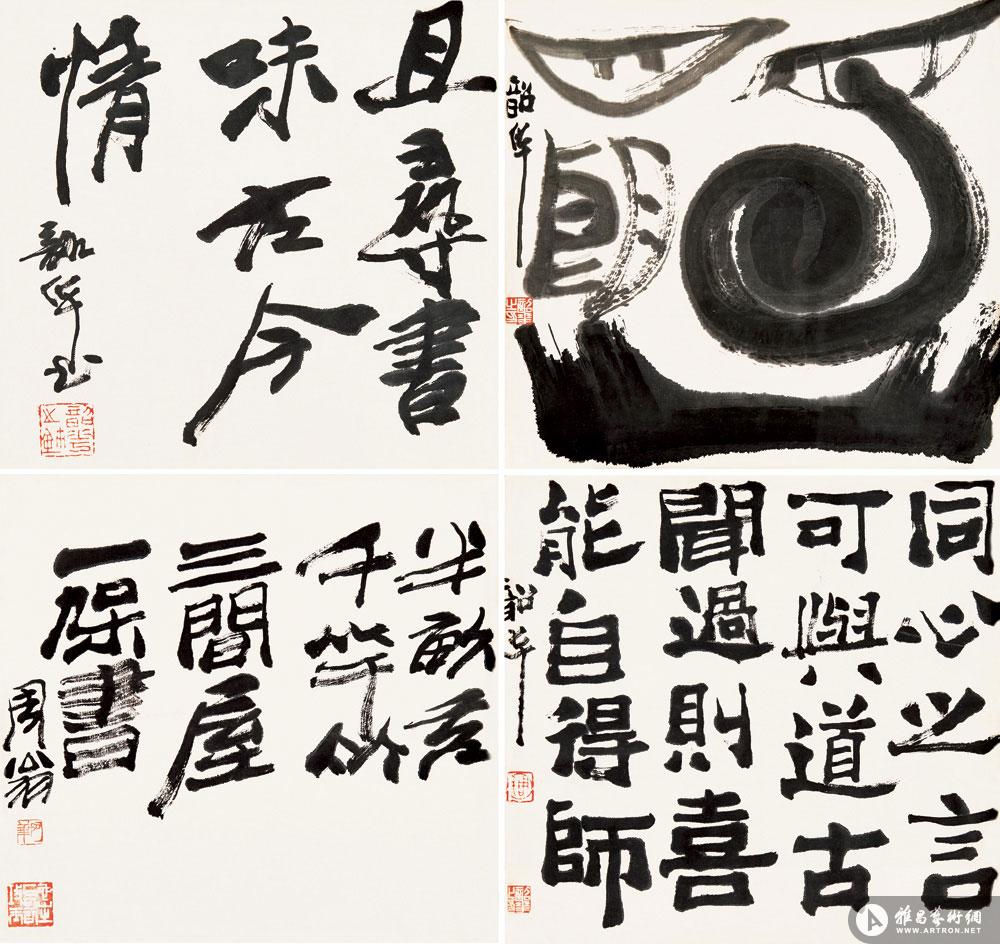 且尋書
味古今
情
韶华书
韶华
半畝
千竿竹
三間屋
一書
周翁
同心之言
可與道古
聞過則喜
能自得師
韶华
雅昌藝術網
WWW.ARTRON.NET